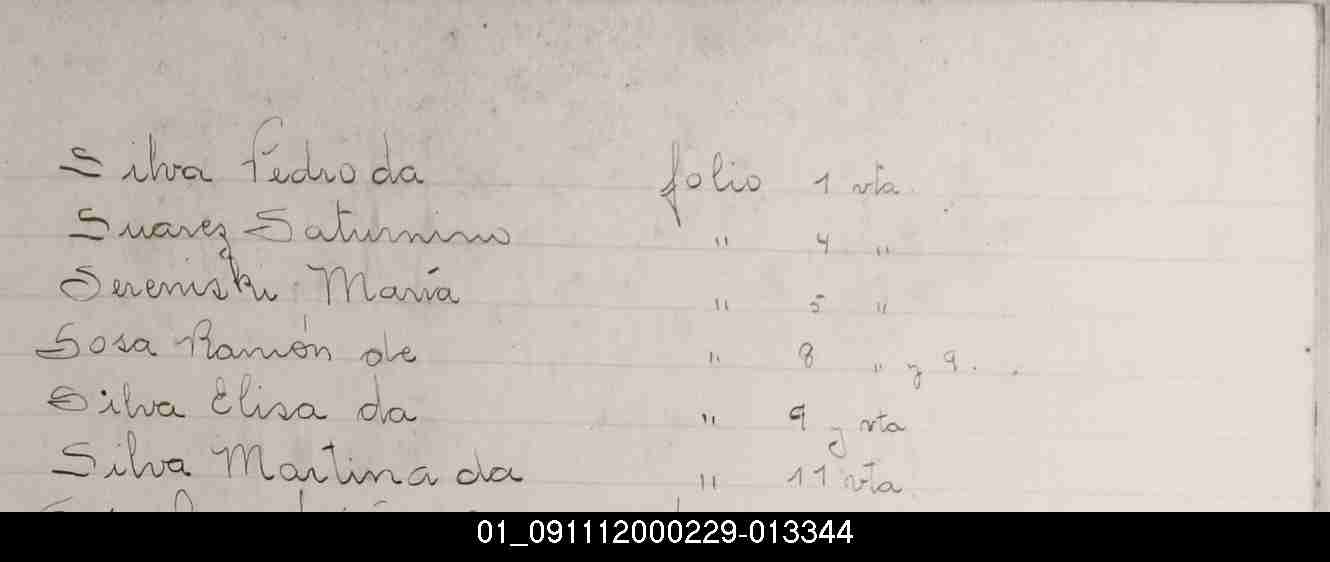 Silva Pedro da folio 1 vta.
Suarez Saturnino " 4 "
Sereniski María " 5 "
Sosa Ramón de " 8 " y 9.
Silva Elisa da " 9 y vta
Silva Martina da " 11 vta
01_091112000229-013344